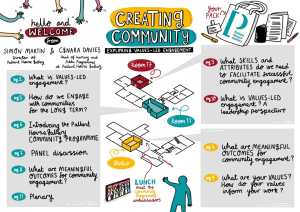 hello and
WELCOME
from
SIMON MARTIN & CÉNARA DAVIES
Director of
Pallant House Gallery
Head of
CREATING
COMMUNITY
EXPLORING VALUES-LED ENGAGEMENT
YOUR
PACK!
What is VALUES-LED
engagement?
How do we ENGAGE
with communities
FOR the LONG TERM?
Introducing the Pallant
House Gallery
COMMUNITY PROGRAMME
PANEL discussion
What are MEANINGFUL
OUTCOMES for
community engagement?
Plenary
Room 1!
Room 1!
LUNCH
with the
community
programme
ambassadors
What SKILLS and
ATTRIBUTES do we need
to FACILITATE successful
community engagement?
What is VALUES-LED
engagement? A
leadership perspective
What are MEANINGFUL
OUTCOMES for
community engagement?
What are your VALUES?
How do your values
inform your work?